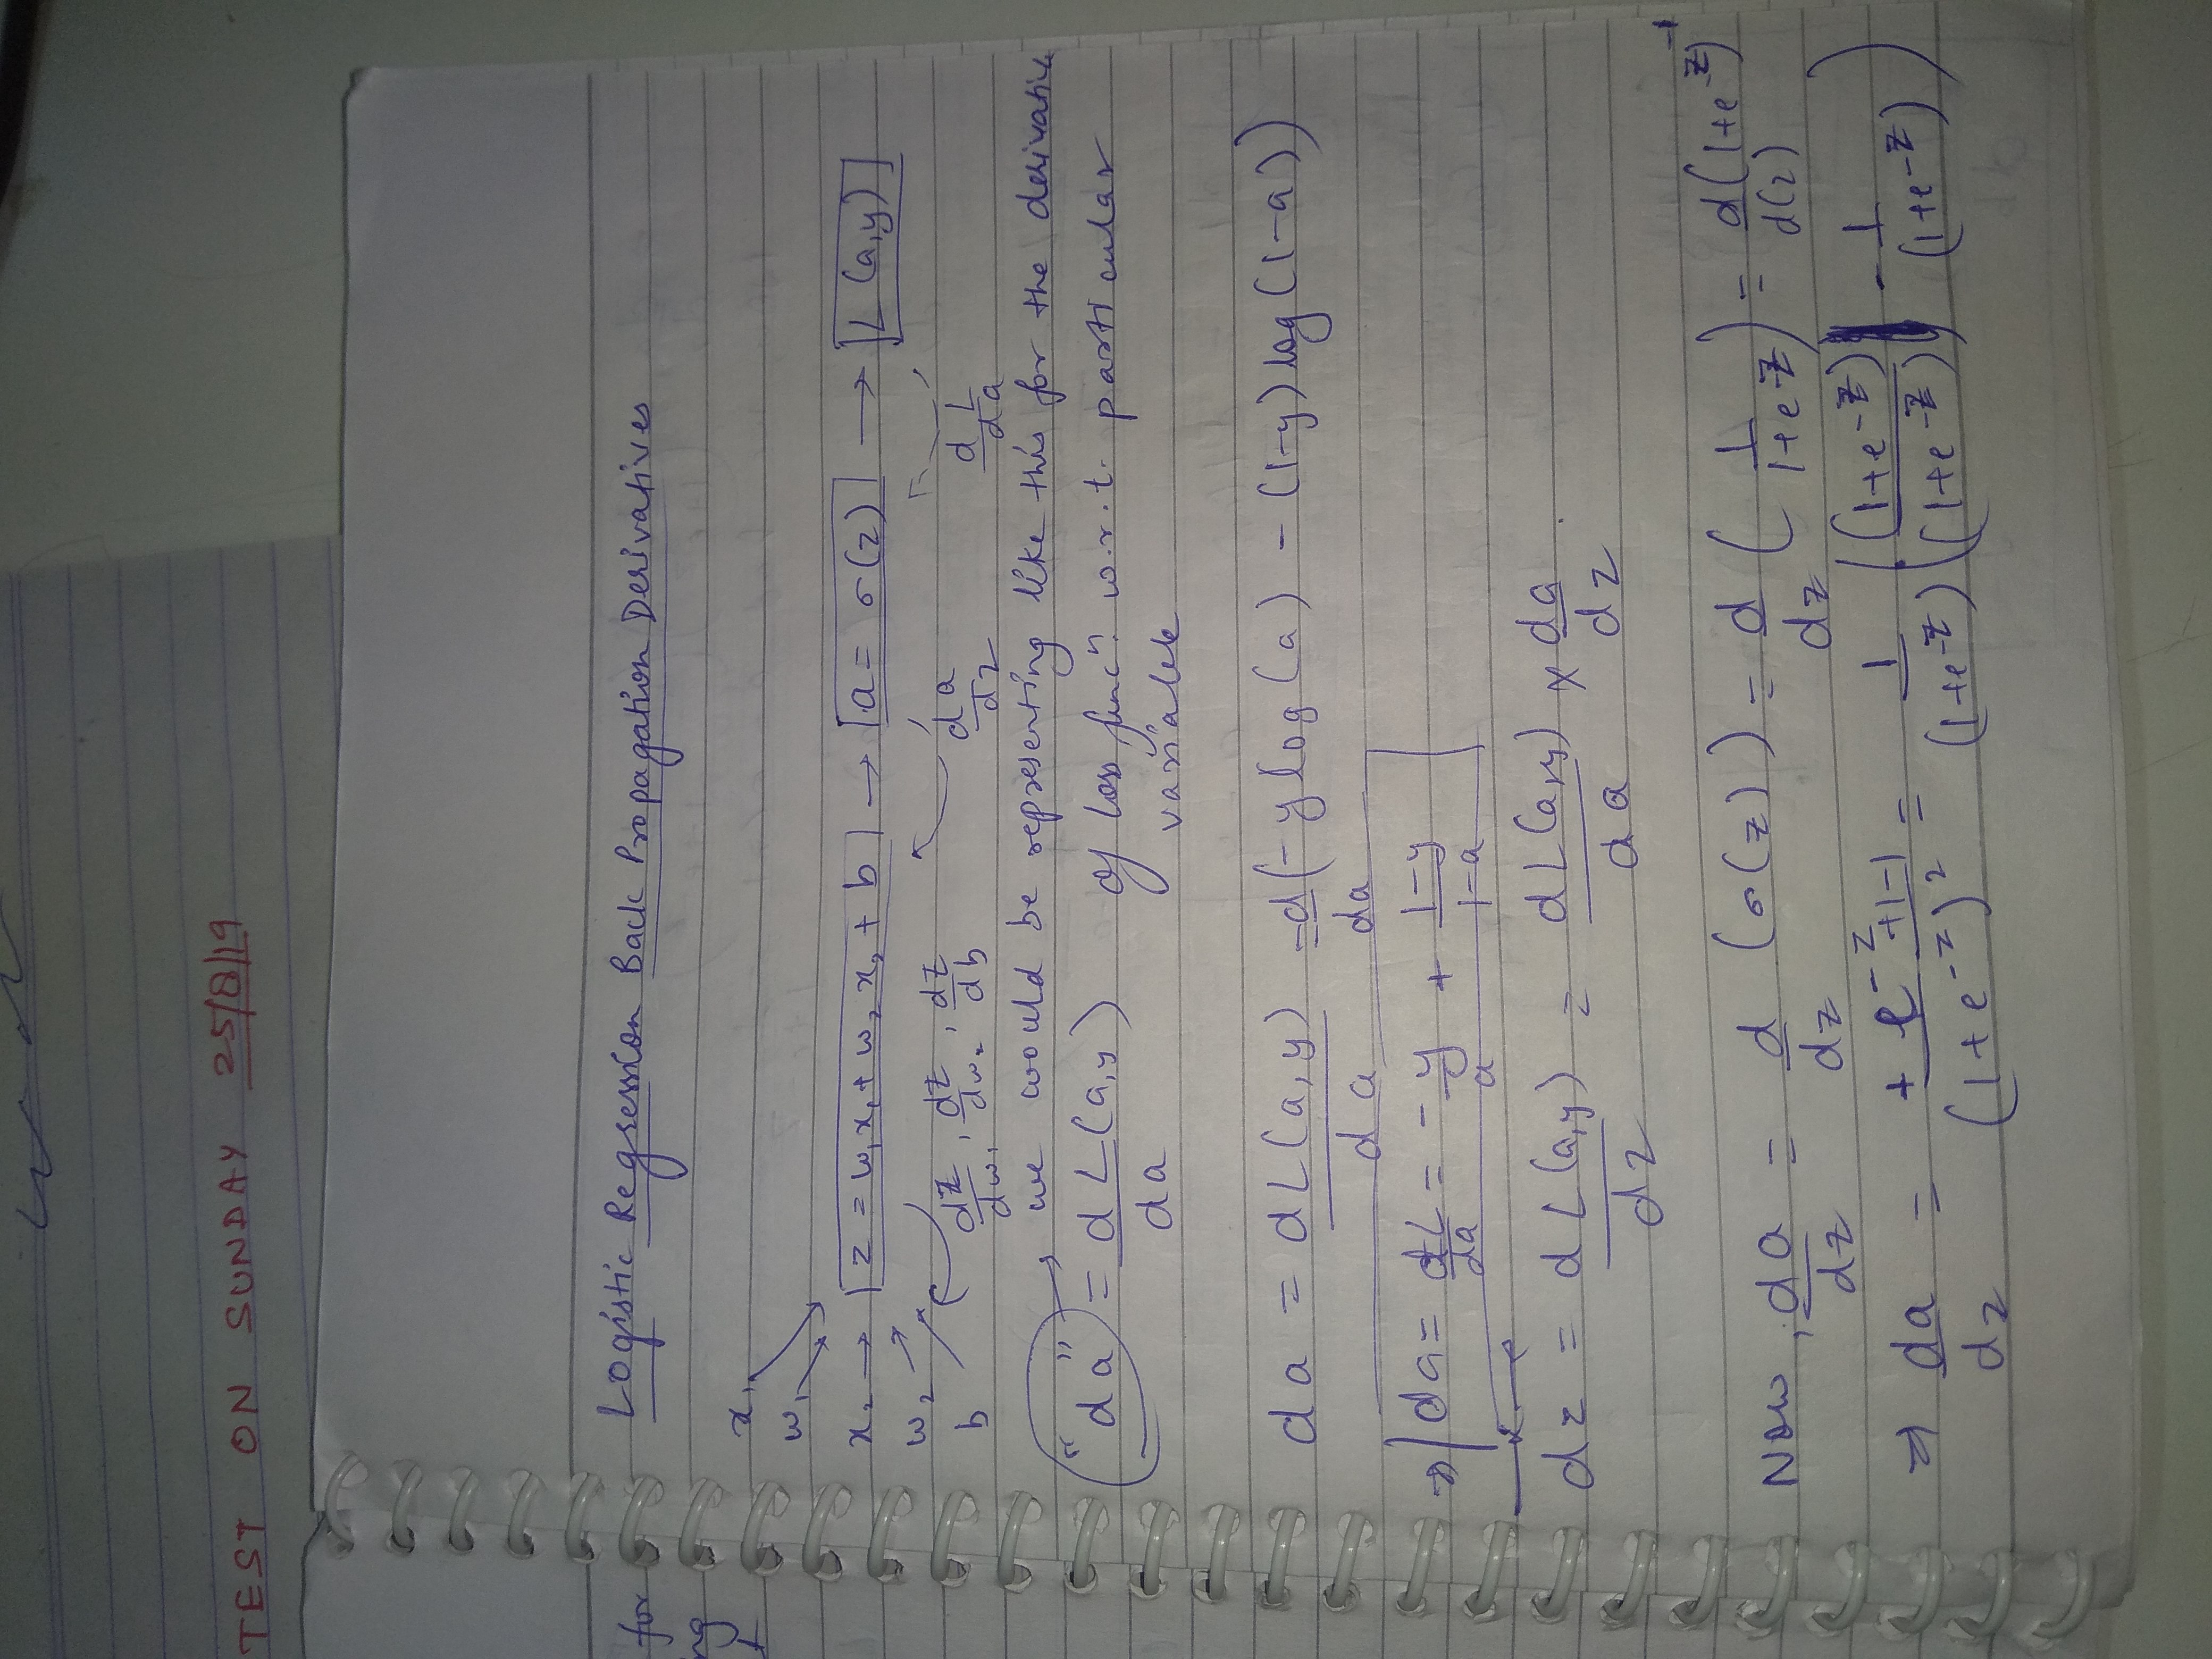 TEST ON SUNDAY 25/8/19
for
Logistic Regression Back Propagation Derivatives
x₁
w₁
x₂ → z = w₁x₁ + w₂x₂ + b → a = σ(z) → L(a,y)
w₂
b
dz/dw₁, dz/dw₂, dz/db
da/dz
dL/da
"da" = dL(a,y)/da
we would be representing like this for the derivative
of loss funcⁿ. w.r.t. particular
variable
da = dL(a,y)/da = d/da (-ylog(a) - (1-y)log(1-a))
⇒ da = dL/da = -y/a + 1-y/1-a
dz = dL(a,y)/dz = dL(a,y)/da × da/dz
Now, da/dz = d/dz (σ(z)) = d/dz (1/1+e⁻ᶻ) = d(1+e⁻ᶻ)⁻¹/d(z)
⇒ da/dz = + e⁻ᶻ+1-1/(1+e⁻ᶻ)² = 1/(1+e⁻ᶻ) ((1+e⁻ᶻ)/(1+e⁻ᶻ) - 1/(1+e⁻ᶻ))